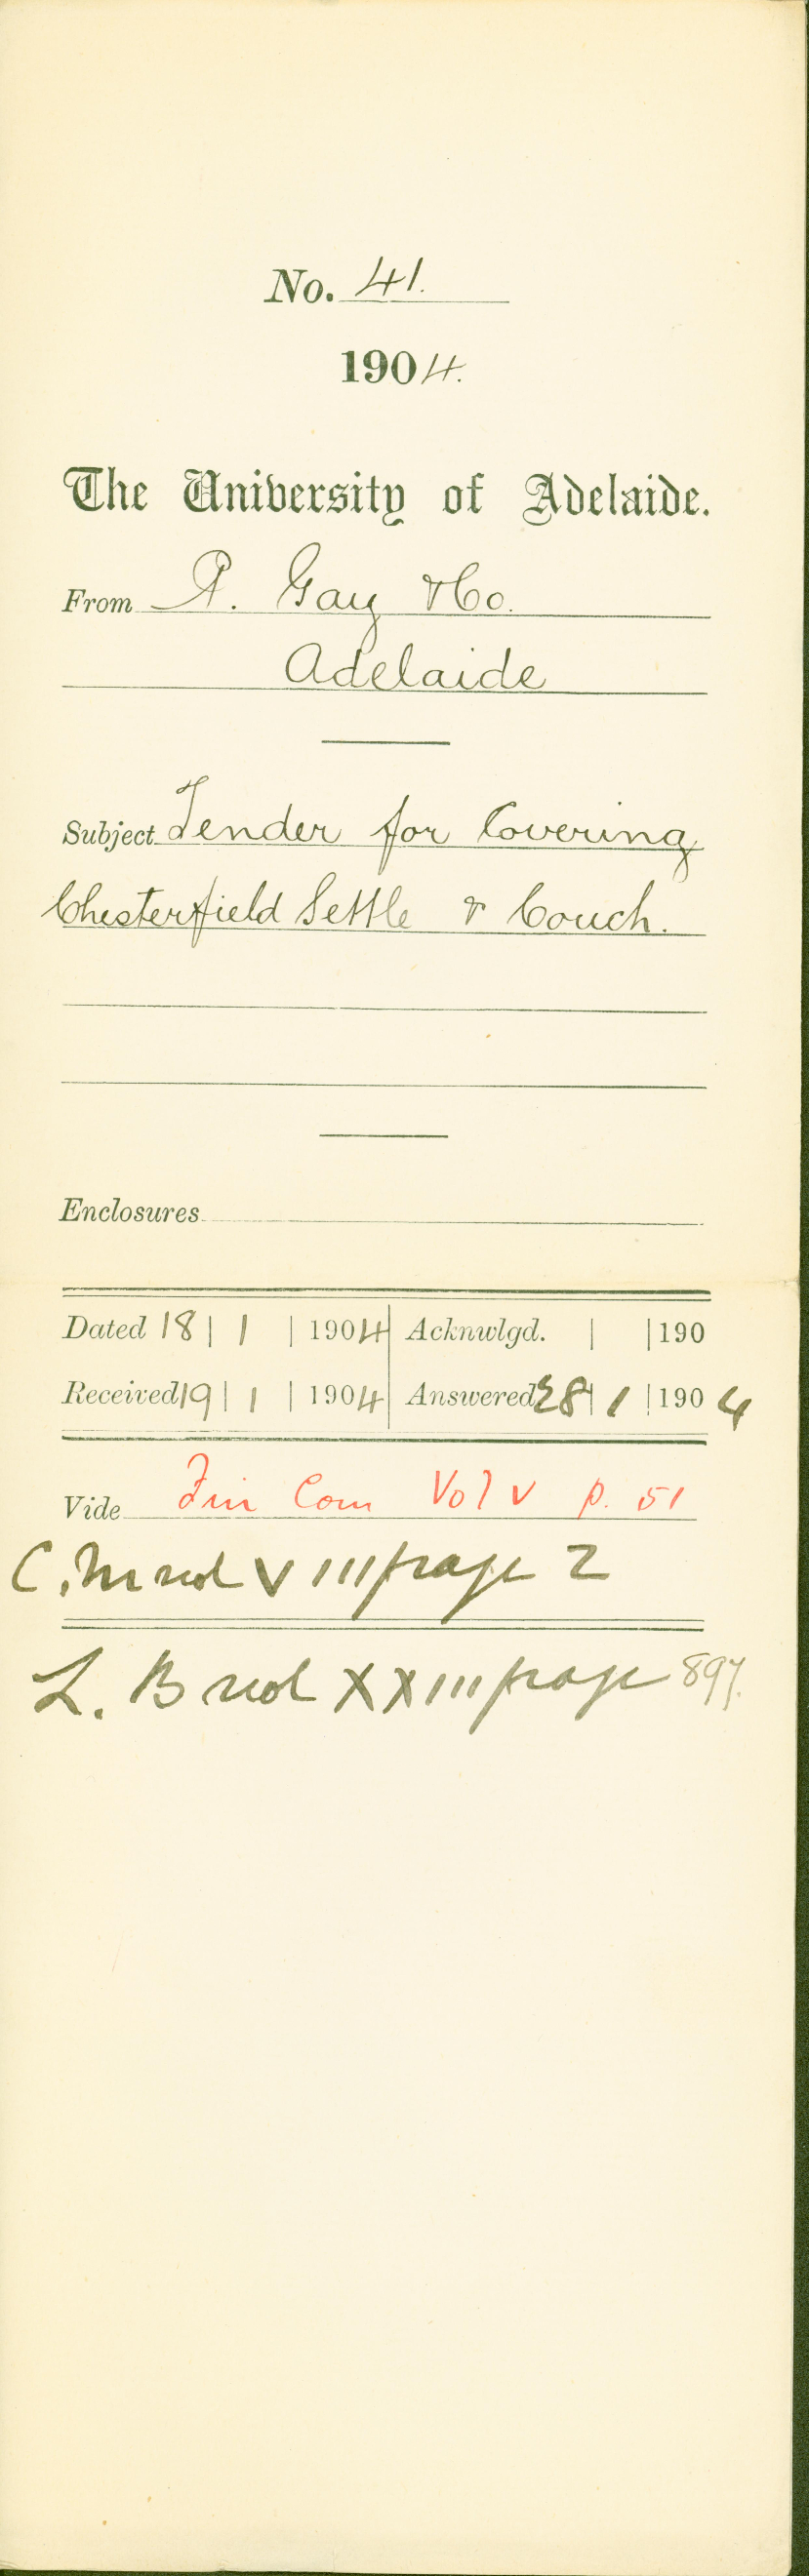 No. 41.
1904.
The University of Adelaide.
From P. Gay & Co.
Adelaide
Subject Tender for Covering
Chesterfield Settle & Couch.
Enclosures
Dated 18 | 1 | 1904 Acknwlgd. | | 190
Received 19 | 1 | 1904 Answered 28 | 1 | 1904
Vide Fin Com Vol V p. 51
C. M vol VIII page 2
L. B vol XXIII page 897.